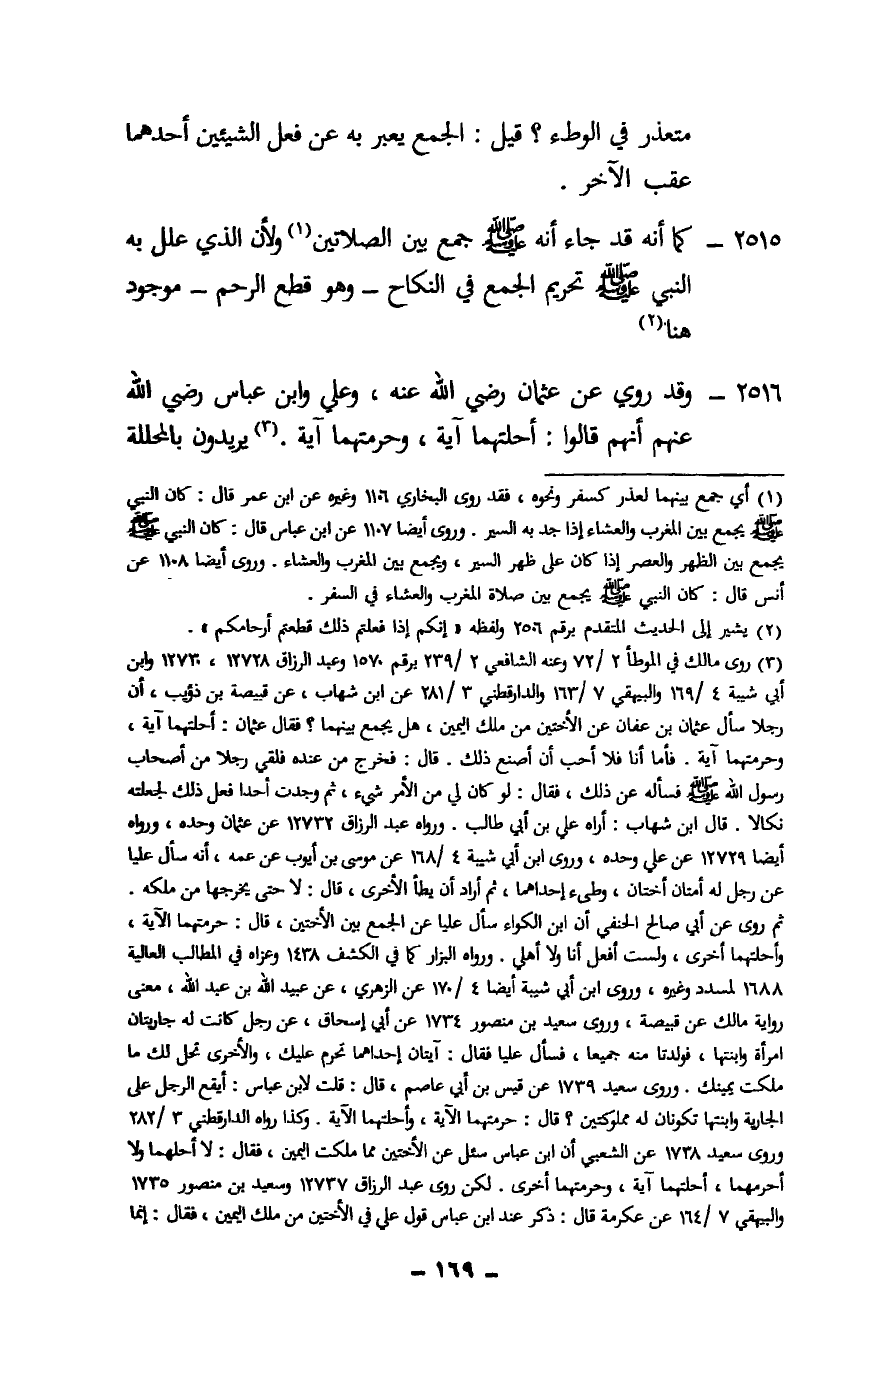 متعذر في الوطء ؟ قيل : الجمع يعبر به عن فعل الشيئين أحدهما
عقب الآخر .
٢٥١٥ – كما أنه قد جاء أنه ﷺ جمع بين الصلاتين(١) ولأن الذي علل به
النبي ﷺ تحريم الجمع في النكاح – وهو قطع الرحم – موجود
هنا(٢)
٢٥١٦ – وقد روي عن عثمان رضي الله عنه ، وعلي وابن عباس رضي الله
عنهم أنهم قالوا : أحلتهما آية ، وحرمتهما آية .(٣) يريدون بالمحللة
(١) أي جمع بينهما لعذر كسفر ونحوه ، فقد روى البخاري ١١٠٦ وغيره عن ابن عمر قال : كان النبي
ﷺ يجمع بين المغرب والعشاء إذا جد به السير . وروى أيضا ١١٠٧ عن ابن عباس قال : كان النبي ﷺ
يجمع بين الظهر والعصر إذا كان على ظهر السير ، ويجمع بين المغرب والعشاء . وروى أيضا ١١٠٨ عن
أنس قال : كان النبي ﷺ يجمع بين صلاة المغرب والعشاء في السفر .
(٢) يشير إلى الحديث المتقدم برقم ٢٥٠٦ ولفظه « إنكم إذا فعلتم ذلك قطعتم أرحامكم » .
(٣) روى مالك في الموطأ ٢ /٧٢ وعنه الشافعي ٢ /٢٣٩ برقم ١٥٧٠ وعبد الرزاق ١٢٧٢٨ ، ١٢٧٣٠ وابن
أبي شيبة ٤ /١٦٩ والبيهقي ٧ /١٦٣ والدارقطني ٣ /٢٨١ عن ابن شهاب ، عن قبيصة بن ذؤيب ، أن
رجلا سأل عثمان بن عفان عن الأختين من ملك اليمين ، هل يجمع بينهما ؟ فقال عثمان : أحلتهما آية ،
وحرمتهما آية . فأما أنا فلا أحب أن أصنع ذلك . قال : فخرج من عنده فلقي رجلا من أصحاب
رسول الله ﷺ فسأله عن ذلك ، فقال : لو كان لي من الأمر شيء ، ثم وجدت أحدا فعل ذلك لجعلته
نكالا . قال ابن شهاب : أراه علي بن أبي طالب . ورواه عبد الرزاق ١٢٧٣٢ عن عثمان وحده ، ورواه
أيضا ١٢٧٢٩ عن علي وحده ، وروى ابن أبي شيبة ٤ /١٦٨ عن موسى بن أيوب عن عمه ، أنه سأل عليا
عن رجل له أمتان أختان ، وطىء إحداهما ، ثم أراد أن يطأ الأخرى ، قال : لا حتى يخرجها من ملكه .
ثم روى عن أبي صالح الحنفي أن ابن الكواء سأل عليا عن الجمع بين الأختين ، قال : حرمتهما الآية ،
وأحلتهما أخرى ، ولست أفعل أنا ولا أهلي . ورواه البزار كما في الكشف ١٤٣٨ وعزاه في المطالب العالية
١٦٨٨ لمسدد وغيره ، وروى ابن أبي شيبة أيضا ٤ /١٧٠ عن الزهري ، عن عبيد الله بن عبد الله ، معنى
رواية مالك عن قبيصة ، وروى سعيد بن منصور ١٧٣٤ عن أبي إسحاق ، عن رجل كانت له جاريتان
امرأة وابنتها ، فولدتا منه جميعا ، فسأل عليا فقال : آيتان إحداهما تحرم عليك ، والأخرى تحل لك ما
ملكت يمينك . وروى سعيد ١٧٣٩ عن قيس بن أبي عاصم ، قال : قلت لابن عباس : أيقع الرجل على
الجارية وابنتها تكونان له مملوكتين ؟ قال : حرمتهما الآية ، وأحلتهما الآية . وكذا رواه الدارقطني ٣ /٢٨٢
وروى سعيد ١٧٣٨ عن الشعبي أن ابن عباس سئل عن الأختين مما ملكت اليمين ، فقال : لا أحلهما ولا
أحرمهما ، أحلتهما آية ، وحرمتهما أخرى . لكن روى عبد الرزاق ١٢٧٣٧ وسعيد بن منصور ١٧٣٥
والبيهقي ٧ /١٦٤ عن عكرمة قال : ذكر عند ابن عباس قول علي في الأختين من ملك اليمين ، فقال : إنما
– ١٦٩ –